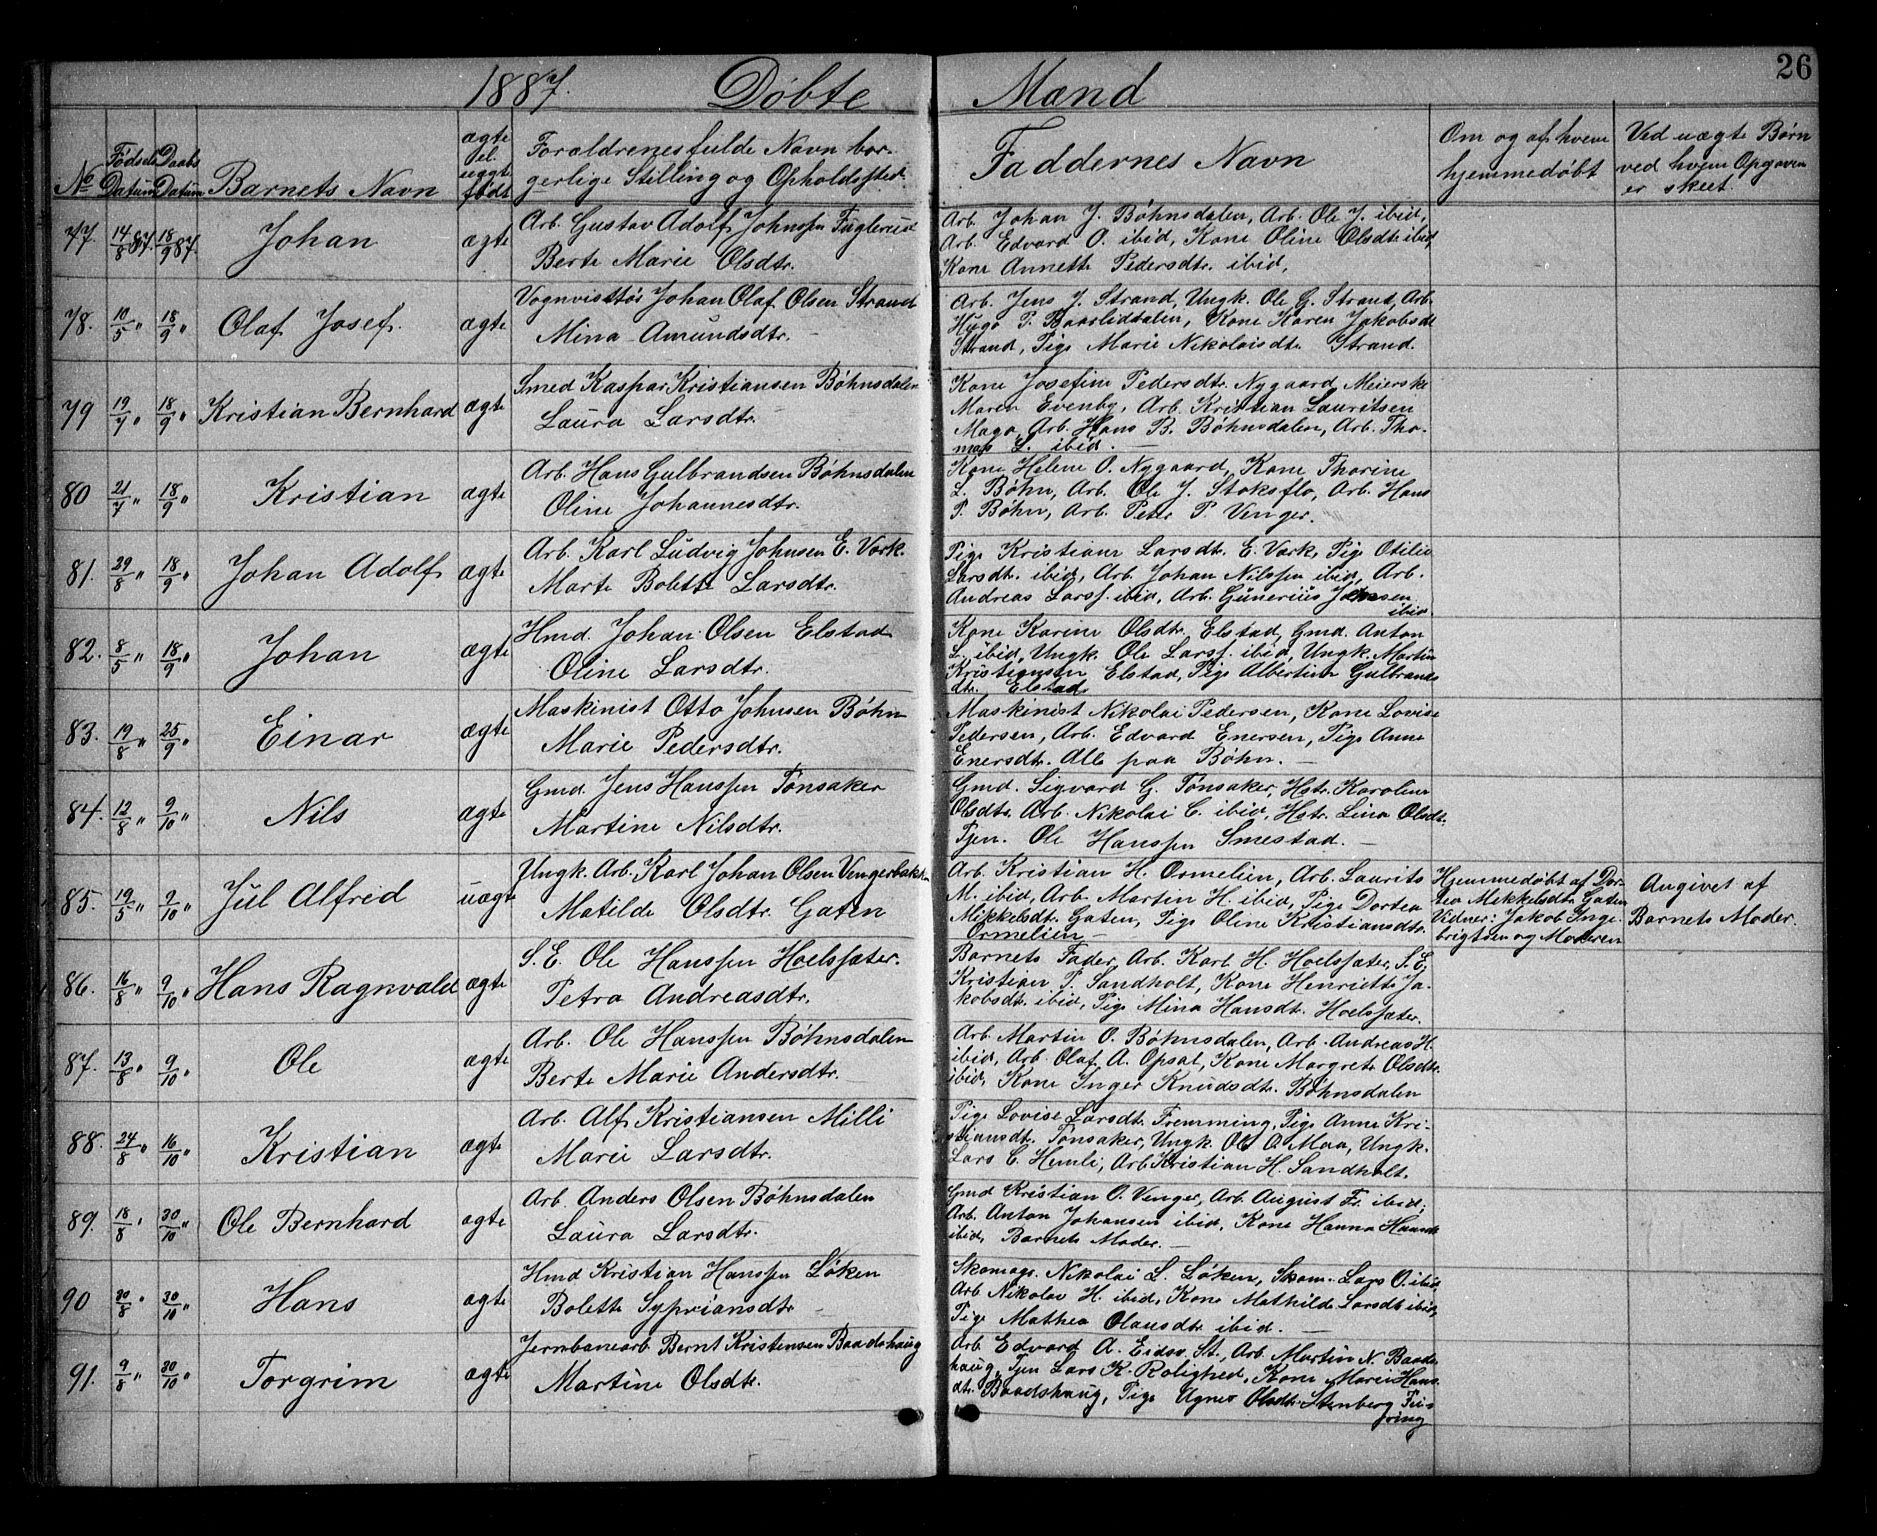 26
1887. Døbte Mænd
No Fødsels Datum Daabs Datum Barnets Navn ægte el. uægte født Forældrenes fulde Navn borgerlige Stilling og Opholdssted. Faddernes Navn Om og af hvem hjemmedøbt Ved uægte Børn ved hvem Opgaven er skeet.
77. 14/8 87. 18/9 87. Johan ægte Arb. Gustav Adolf Johnsen Fuglerud
Berte Marie Olsdtr.
Arb. Johan J. Bøhnsdalen, Arb. Ole J. ibid,
Arb. Edvard O. ibid, Kone Oline Olsdtr ibid,
Kone Annette Pedersdtr. ibid,
78. 10/5 " 18/9 " Olaf Josef. ægte Johan Olaf Olsen Strand
Mina Amundsdtr.
Arb. Jens J. Strand, Ungk. Ole G. Strand, Arb.
Hugo P. Baasliddalen, Kone Karen Jakobsdt
Strand, Pige Marie Nikolaisdtr. Strand.
79 19/7 " 18/9 " Kristian Bernhard ægte Smed Kaspar Kristiansen Bøhnsdalen
Laura Larsdtr.
Kone Josefine Pedersdtr. Nygaard, Meierske
Maren Evenby, Arb. Kristian Lauritsen
Mago, Arb. Hans B. Bøhnsdalen, Arb. Tho-
mas L. ibid. —
80 21/7 " 18/9 " Kristian ægte Arb. Hans Gulbrandsen Bøhnsdalen
Oline Johannesdtr.
Kone Helene O. Nygaard, Kone Thorine
L. Bøhn, Arb. Ole J. Stoksflo, Arb. Hans
P. Bøhn, Arb. Peter P. Venger.
81. 29/8 " 18/9 " Johan Adolf ægte Arb. Karl Ludvig Johnsen E. Værk.
Marte Bolette Larsdtr.
Pige Kristiane Larsdtr. E. Værk, Pige Otilie
Larsdtr. ibid, Arb. Johan Nilssen ibid, Arb.
Andreas Larss. ibid, Arb. Gunerius Jensen
ibid.
82. 8/5 " 18/9 " Johan ægte Hmd. Johan Olsen Elstad
Oline Larsdtr.
Kone Karine Olsdtr. Elstad, Gmd. Anton
L. ibid, Ungk. Ole Larss. ibid, Ungk. Martin
Kristiansen Elstad, Pige Albertine Gulbrands
dtr. Elstad
83. 19/8 " 25/9 " Einar ægte Maskinist Otto Johnsen Bøhn
Marie Pedersdtr.
Maskinist Nikolai Pedersen, Kone Lovise
Pedersen, Arb. Edvard Enersen, Pige Anne
Enersdtr. Alle paa Bøhn. —
84. 12/8 " 9/10 " Nils ægte Gmd. Jens Hanssen Tønsaker
Martine Nilsdtr.
Gmd. Sigvard G. Tønsaker, Hstr. Karoline
Olsdtr. Arb. Nikolai C. ibid, Hstr. Lina Olsdtr.
Tjen. Ole Hanssen Smestad. —
85. 19/5 " 9/10 " Jul Alfred uægte Ungk. Arb. Karl Johan Olsen Vengerbakken
Matilde Olsdtr. Gaten
Arb. Kristian H. Ormelien, Arb. Laurits
M. ibid, Arb. Martin H. ibid, Pige Dortea
Mikkelsdtr. Gaten, Pige Oline Kristiansdtr.
Ormelien —
Hjemmedøbt af Dor-
tea Mikkelsdtr Gaten
Vidner: Jakob Inge-
brigtsen og Moderen
Angivet af
Barnets Moder.
86. 16/8 " 9/10 " Hans Ragnvald ægte S. E. Ole Hanssen Hoelsæter.
Petra Andreasdtr.
Barnets Fader, Arb. Karl H. Hoelsæter, S. E.
Kristian P. Sandholt, Kone Henriette Ja-
kobsdtr. ibid, Pige Mina Hansdtr. Hoelsæter.
87. 13/8 " 9/10 " Ole ægte Arb. Ole Hanssen Bøhnsdalen
Berte Marie Andersdtr.
Arb. Martin O. Bøhnsdalen, Arb. Andreas H.
ibid, Arb. Olaf A. Opsal, Kone Margrete Olsdtr.
ibid, Kone Inger Knudsdtr. Bøhnsdalen
88. 24/8 " 16/10 " Kristian ægte Arb. Alf Kristiansen Milli
Marie Larsdtr.
Pige Lovise Larsdtr. Fremming, Pige Anne Kri-
stiansdtr. Tønsaker, Ungk. Ole O. Maa, Ungk.
Lars C. Hemli, Arb. Kristian H. Sandholt.
89. 18/8 " 30/10 " Ole Bernhard ægte Arb. Anders Olsen Bøhnsdalen
Laura Larsdtr.
Gmd Kristian O. Venger, Arb. August Fr. ibid,
Arb. Anton Johansen ibid, Kone Hanna Hansdt
ibid, Barnets Moder. —
90 30/8 " 30/10 " Hans ægte Hmd Kristian Hanssen Løken
Bolette Sypriansdtr
Skomag. Nikolai L. Løken, Skom. Lars O. ibid,
Arb Nikolai H. ibid, Kone Mathilde Larsdtr ibid,
Pige Mathea Olausdtr ibid. —
91. 9/8 " 30/10 " Torgrim ægte Jernbanearb. Bernt Kristensen Baadshaug
Martine Olsdtr.
Arb Edvard A. Eidsv. St., Arb. Martin N. Baads-
haug, Tjen Lars K. Rolighed, Kone Marie Hans-
dtr. Baadshaug, Pige Agnes Olsdtr. Stenberg